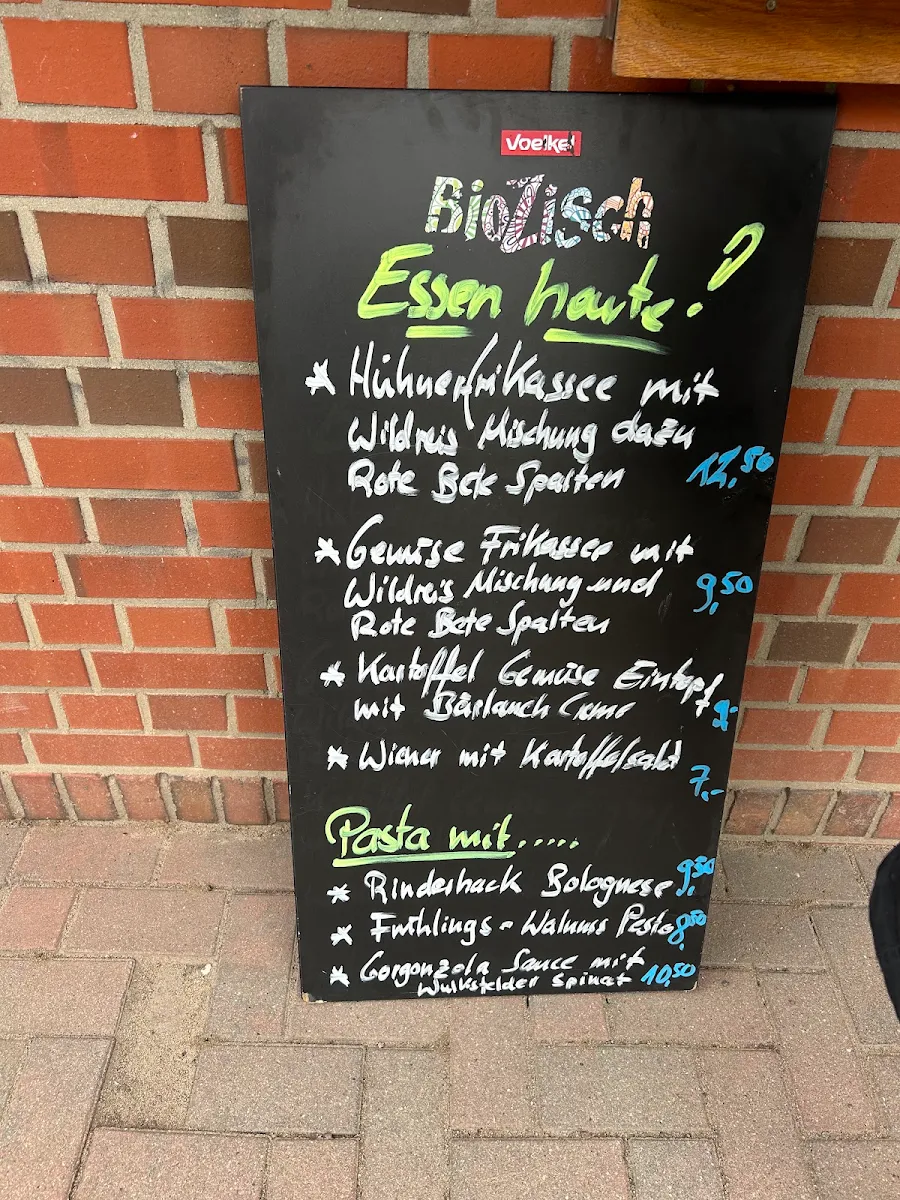 Voelkel
BioZisch
Essen heute?
* Hühnerfrikassee mit
Wildreis Mischung dazu
Rote Bete Spalten 12,50
* Gemüse Frikassee mit
Wildreis Mischung und 9,50
Rote Bete Spalten
* Kartoffel Gemüse Eintopf
mit Bärlauch Creme 9,-
* Wiener mit Kartoffelsalat
7,-
Pasta mit.....
* Rinderhack Bolognese 9,50
* Frühlings - Walnuss Pesto 8,50
* Gorgonzola Sauce mit 10,50
Wulksfelder Spinat